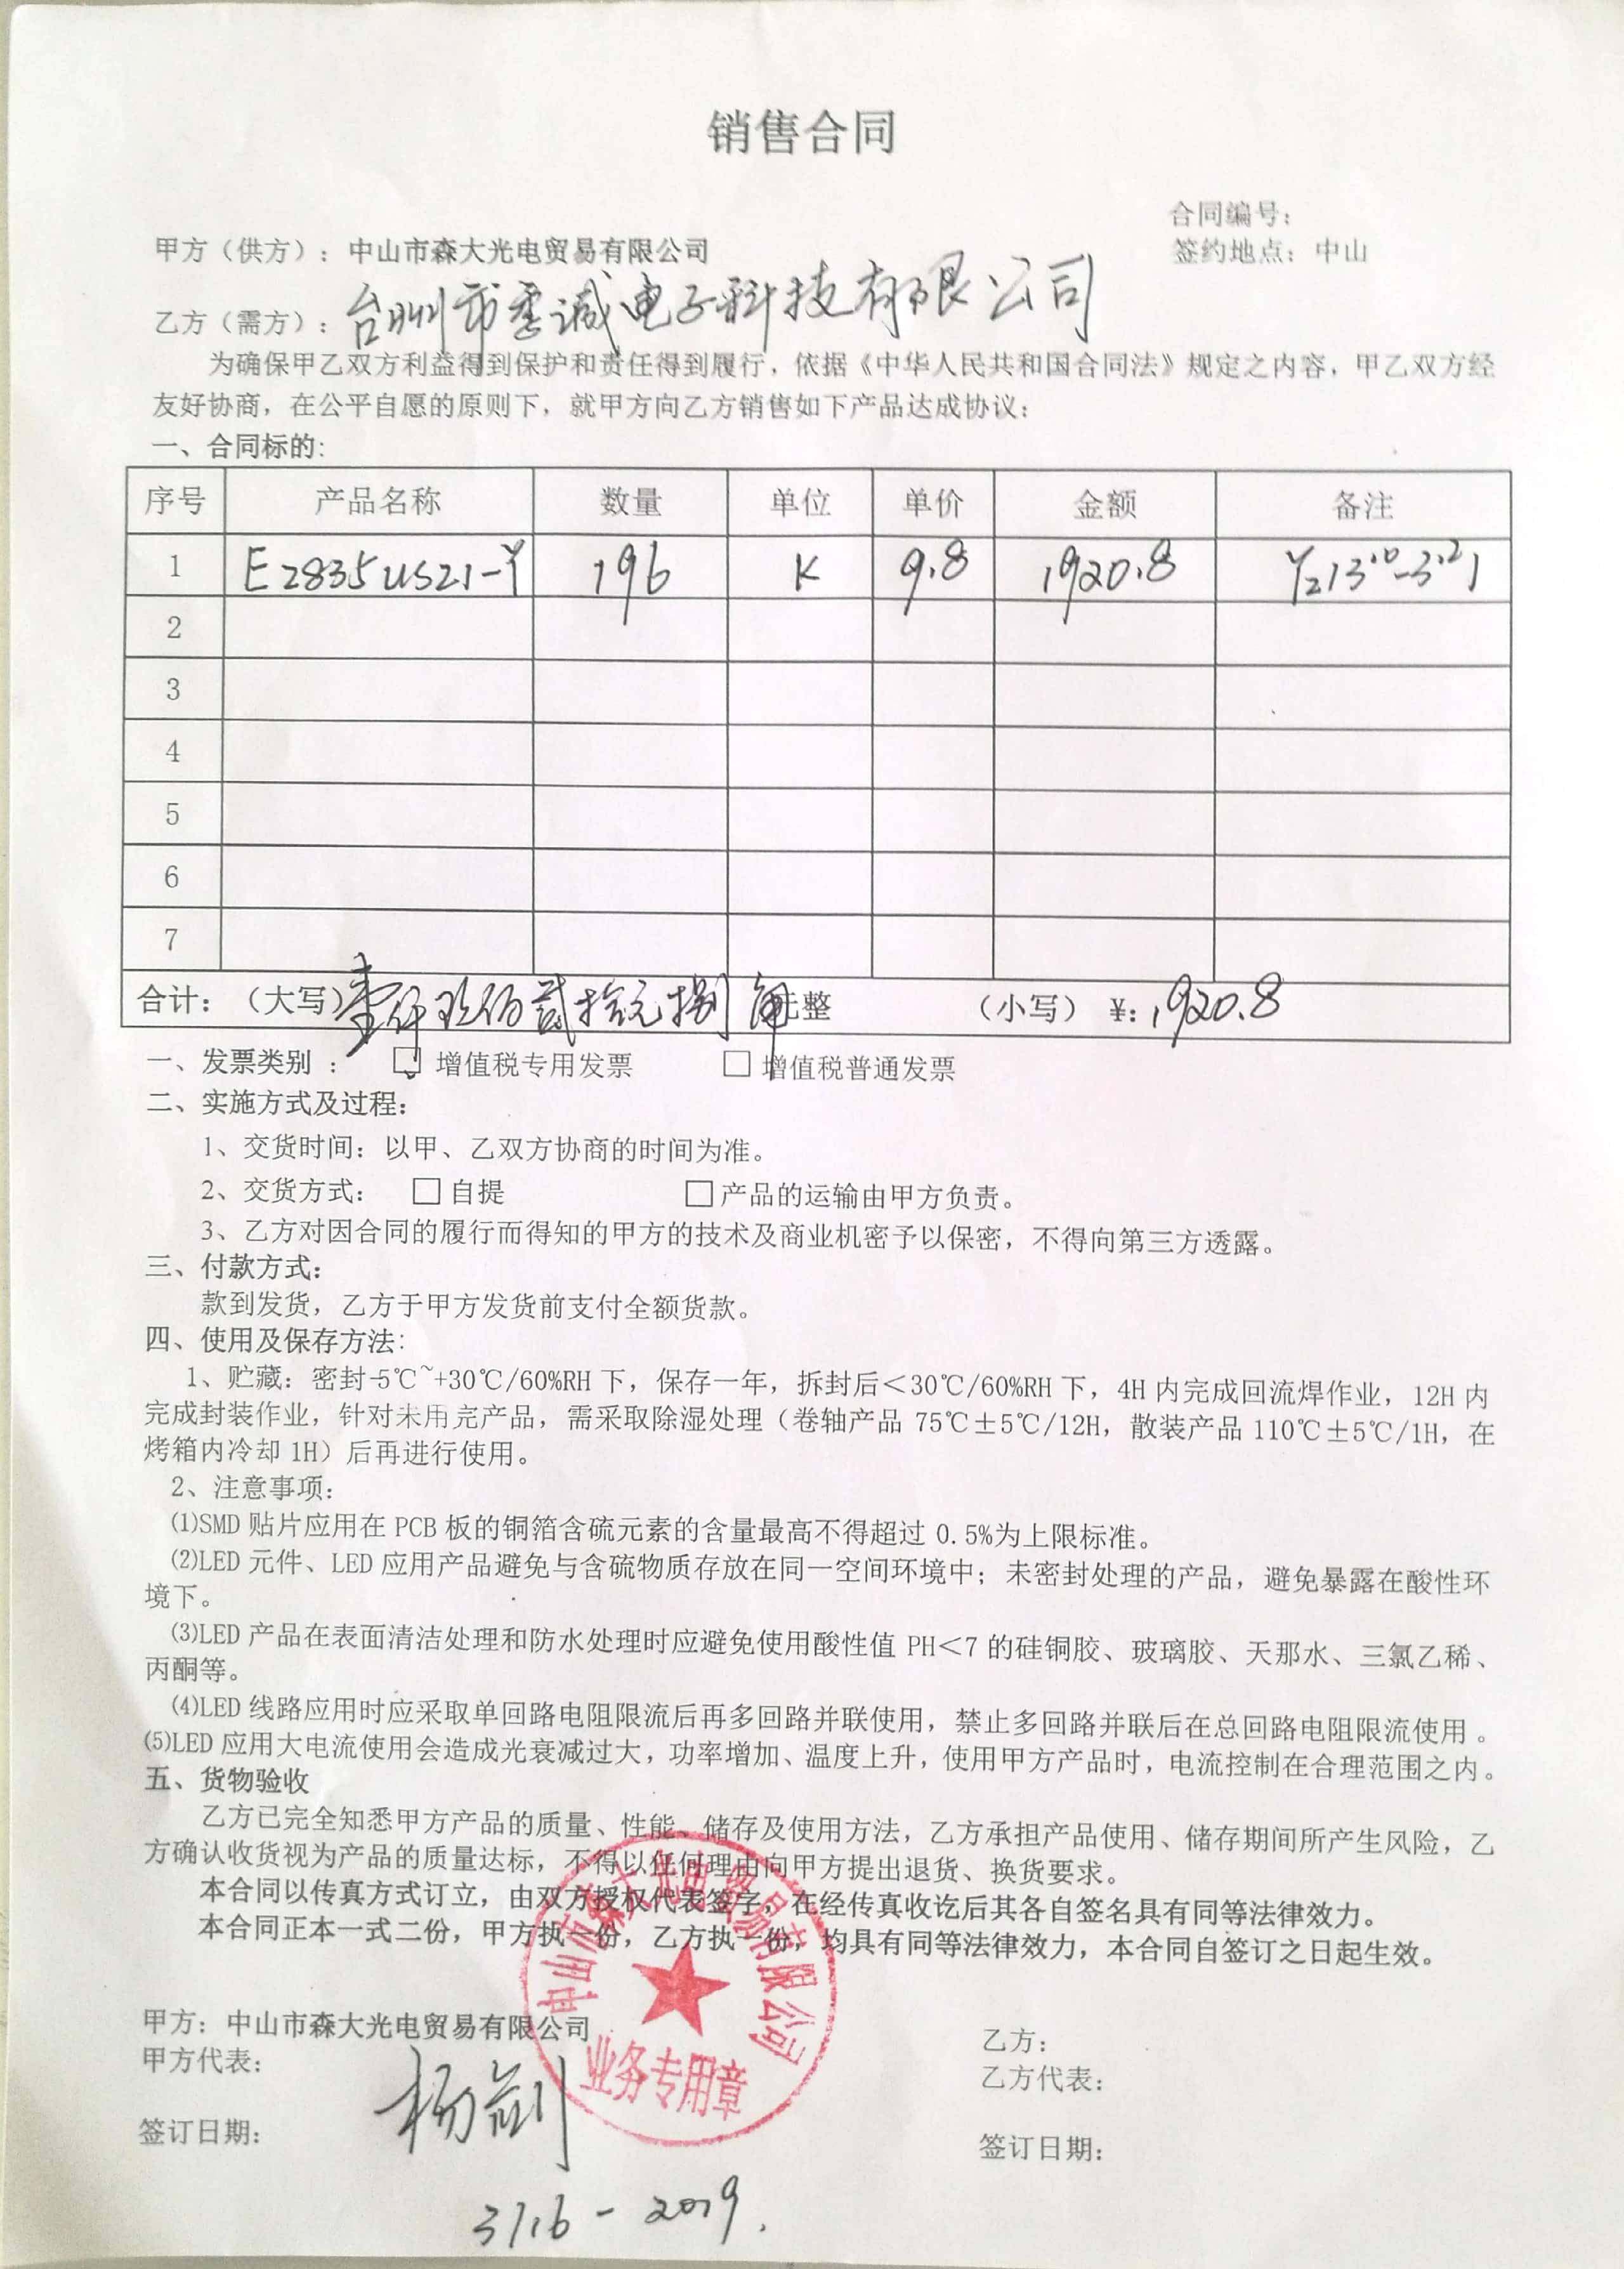 销售合同
合同编号：
甲方（供方）：中山市森大光电贸易有限公司
签约地点：中山
乙方（需方）：台州市季诚电子科技有限公司
为确保甲乙双方利益得到保护和责任得到履行，依据《中华人民共和国合同法》规定之内容，甲乙双方经
友好协商，在公平自愿的原则下，就甲方向乙方销售如下产品达成协议：
一、合同标的：
序号 产品名称 数量 单位 单价 金额 备注
1 E2835US21-Y 196 K 9.8 1920.8
2
3
4
5
6
7
合计：（大写）壹仟玖佰贰拾元捌角元整 （小写）¥：1920.8
一、发票类别： □ 增值税专用发票 □ 增值税普通发票
二、实施方式及过程：
1、交货时间：以甲、乙双方协商的时间为准。
2、交货方式： □自提 □产品的运输由甲方负责。
3、乙方对因合同的履行而得知的甲方的技术及商业机密予以保密，不得向第三方透露。
三、付款方式：
款到发货，乙方于甲方发货前支付全额货款。
四、使用及保存方法：
1、贮藏：密封-5℃~+30℃/60%RH 下，保存一年，拆封后＜30℃/60%RH 下，4H 内完成回流焊作业，12H 内
完成封装作业，针对未用完产品，需采取除湿处理（卷轴产品 75℃±5℃/12H，散装产品 110℃±5℃/1H，在
烤箱内冷却 1H）后再进行使用。
2、注意事项：
⑴SMD 贴片应用在 PCB 板的铜箔含硫元素的含量最高不得超过 0.5%为上限标准。
⑵LED 元件、LED 应用产品避免与含硫物质存放在同一空间环境中；未密封处理的产品，避免暴露在酸性环
境下。
⑶LED 产品在表面清洁处理和防水处理时应避免使用酸性值 PH＜7 的硅铜胶、玻璃胶、天那水、三氯乙稀、
丙酮等。
⑷LED 线路应用时应采取单回路电阻限流后再多回路并联使用，禁止多回路并联后在总回路电阻限流使用。
⑸LED 应用大电流使用会造成光衰减过大，功率增加、温度上升，使用甲方产品时，电流控制在合理范围之内。
五、货物验收
乙方已完全知悉甲方产品的质量、性能、储存及使用方法，乙方承担产品使用、储存期间所产生风险，乙
方确认收货视为产品的质量达标，不得以任何理由向甲方提出退货、换货要求。
本合同以传真方式订立，由双方授权代表签字，在经传真收讫后其各自签名具有同等法律效力。
本合同正本一式二份，甲方执一份，乙方执一份，均具有同等法律效力，本合同自签订之日起生效。
中山市森大光电贸易有限公司
业务专用章
甲方：中山市森大光电贸易有限公司
乙方：
甲方代表：
乙方代表：
签订日期：
签订日期：
3/16-2019.